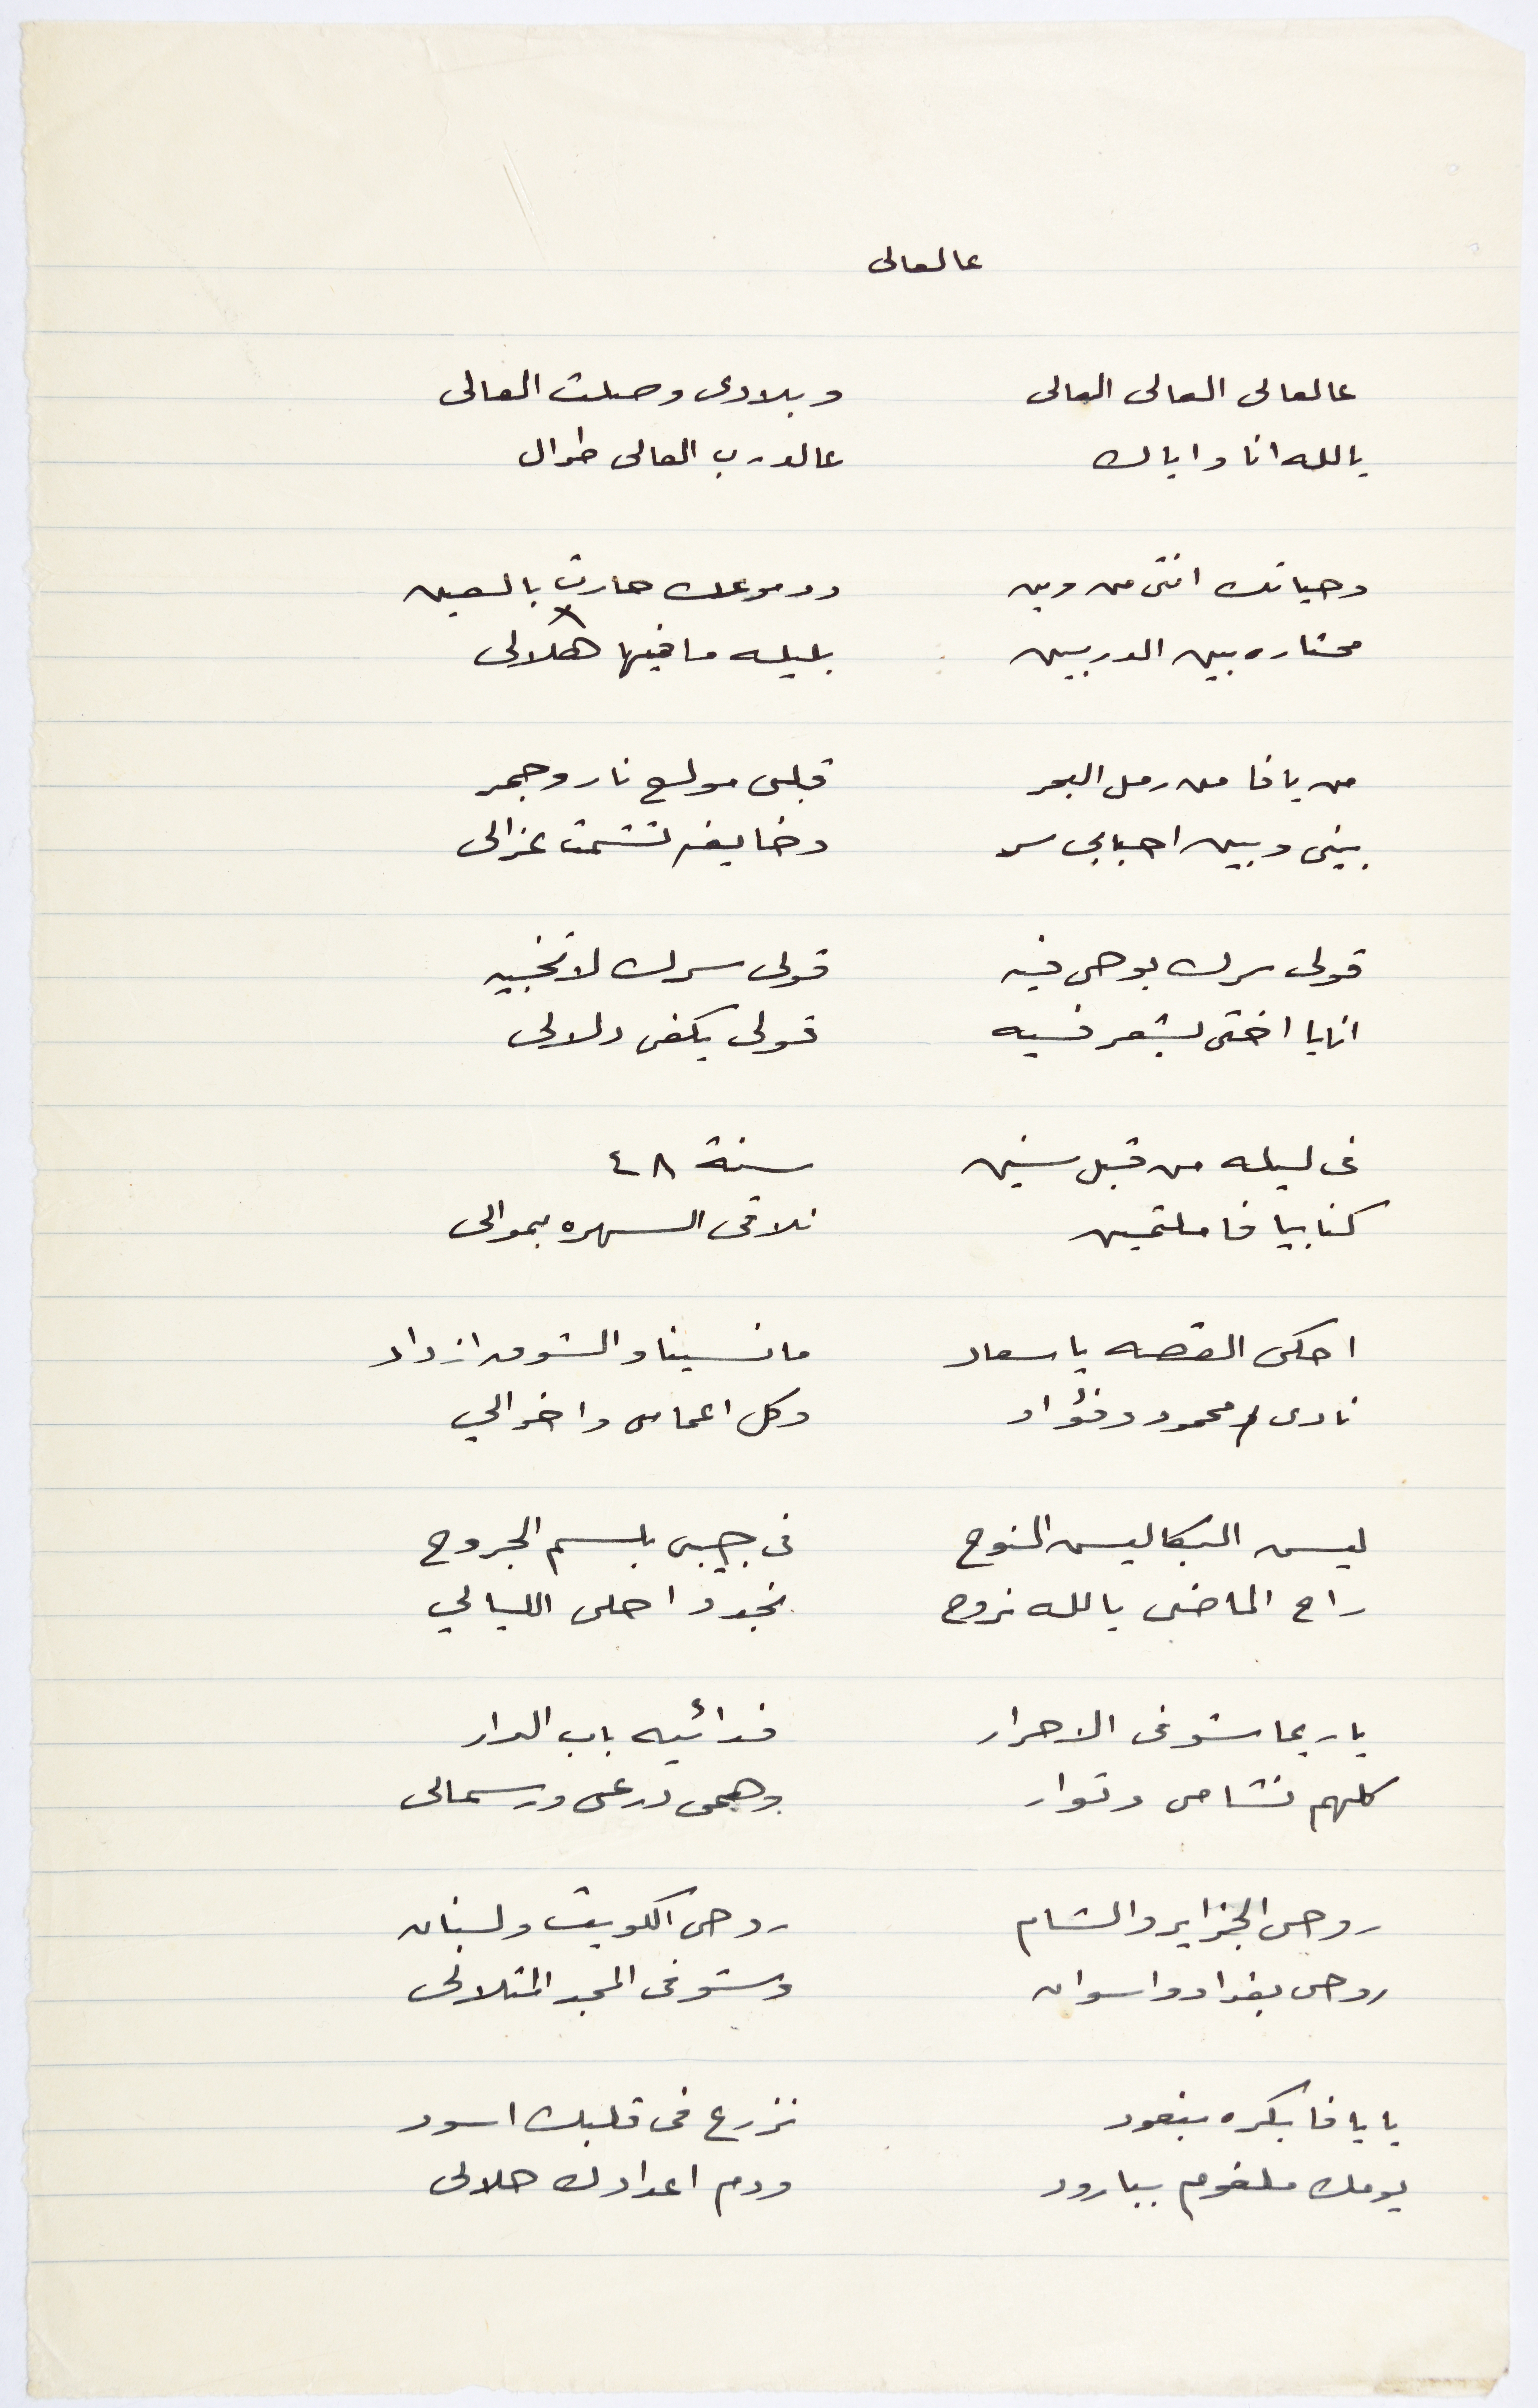 عالعالى
عالعالى العالى العالى وبلادى وصلت العالى
يالله انا واياك عالدرب العالى طوال
وحياتك انتى من وين ودموعك حارت بالعين
محتاره بين الدربين بليله مافيها هلالى
من يافا من رمل البحر قلبى مولع نار وجمر
بينى وبين احبابى سر وخايفه تشمت عزالى
قولى سرك بوحى فيه قولى سرك لا تخبيه
انا يا اختى بشعر فيه قولى يكفى دلالى
فى ليله من قبل سنين سنة ٤٨
كنا بيافا ملتمين نلاقى السهره بموالى
احكى القصه يا سعاد مانسينا والشوق ازداد
نادى محمود وفؤاد وكل اعمامى واخوالي
ليس البكا ليس النوح فى جيبى بلسم الجروح
راح الماضى يالله نروح نجدد احلى الليالي
يا ريما شوفى الاحرار فدائيه باب الدار
كلهم نشامى وثوار وهمى درعى ورسمالى
روحى الجزاير والشام روحى الكويت ولبنان
روحى بغداد واسوان وشوفى المجد المتلالى
يا يافا بكره بنعود نزرع فى قلبك اسود
يومك ملغوم ببارود ودم اعدادك حلالى